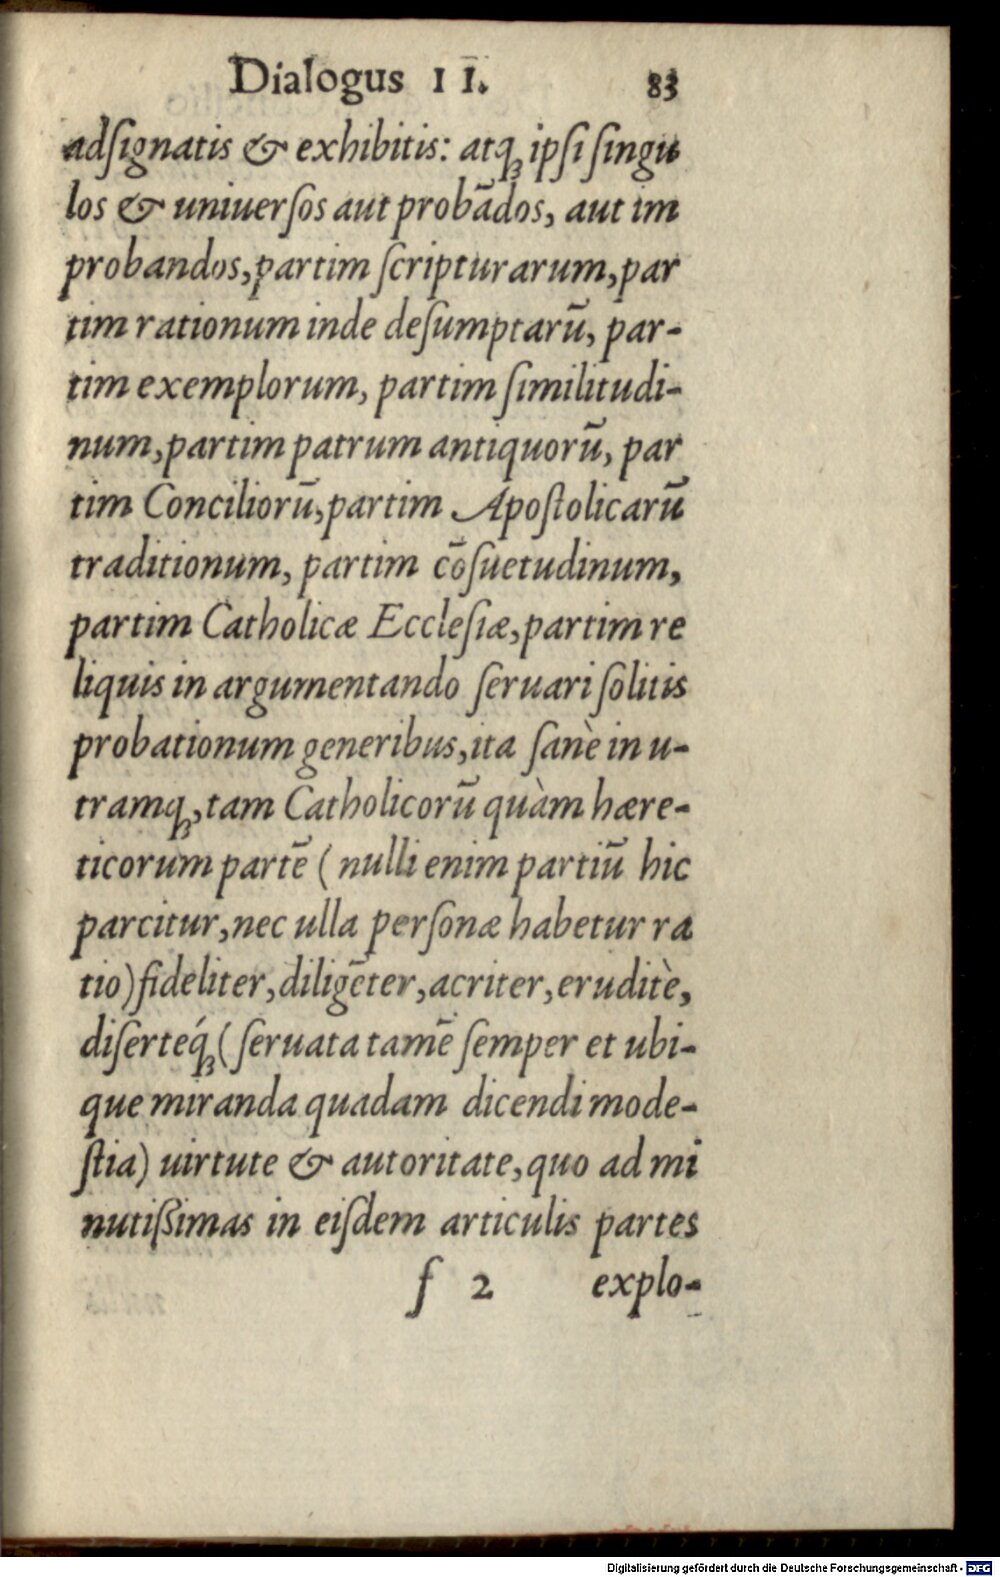 Dialogus II. 83
adſignatis & exhibitis: atq́ꝫ ipſi ſingu
los & uniuerſos aut probãdos, aut im
probandos, partim ſcripturarum, par
tim rationum inde deſumptarũ, par-
tim exemplorum, partim ſimilitudi-
num, partim patrum antiquorũ, par
tim Conciliorũ, partim Apoſtolicarũ
traditionum, partim cõſuetudinum,
partim Catholicæ Eccleſiæ, partim re
liquis in argumentando ſeruari ſolitis
probationum generibus, ita ſanè in u-
tramqꝫ, tam Catholicorũ quàm hære-
ticorum partẽ (nulli enim partiũ hic
parcitur, nec ulla perſonæ habetur ra
tio) fideliter, diligẽter, acriter, eruditè,
diſerteq́ꝫ (ſeruata tamẽ ſemper et ubi-
que miranda quadam dicendi mode-
ſtia) uirtute & autoritate, quo ad mi
nutiſſimas in eiſdem articulis partes
f 2 explo-
Digitalisierung gefördert durch die Deutsche Forschungsgemeinschaft - DFG